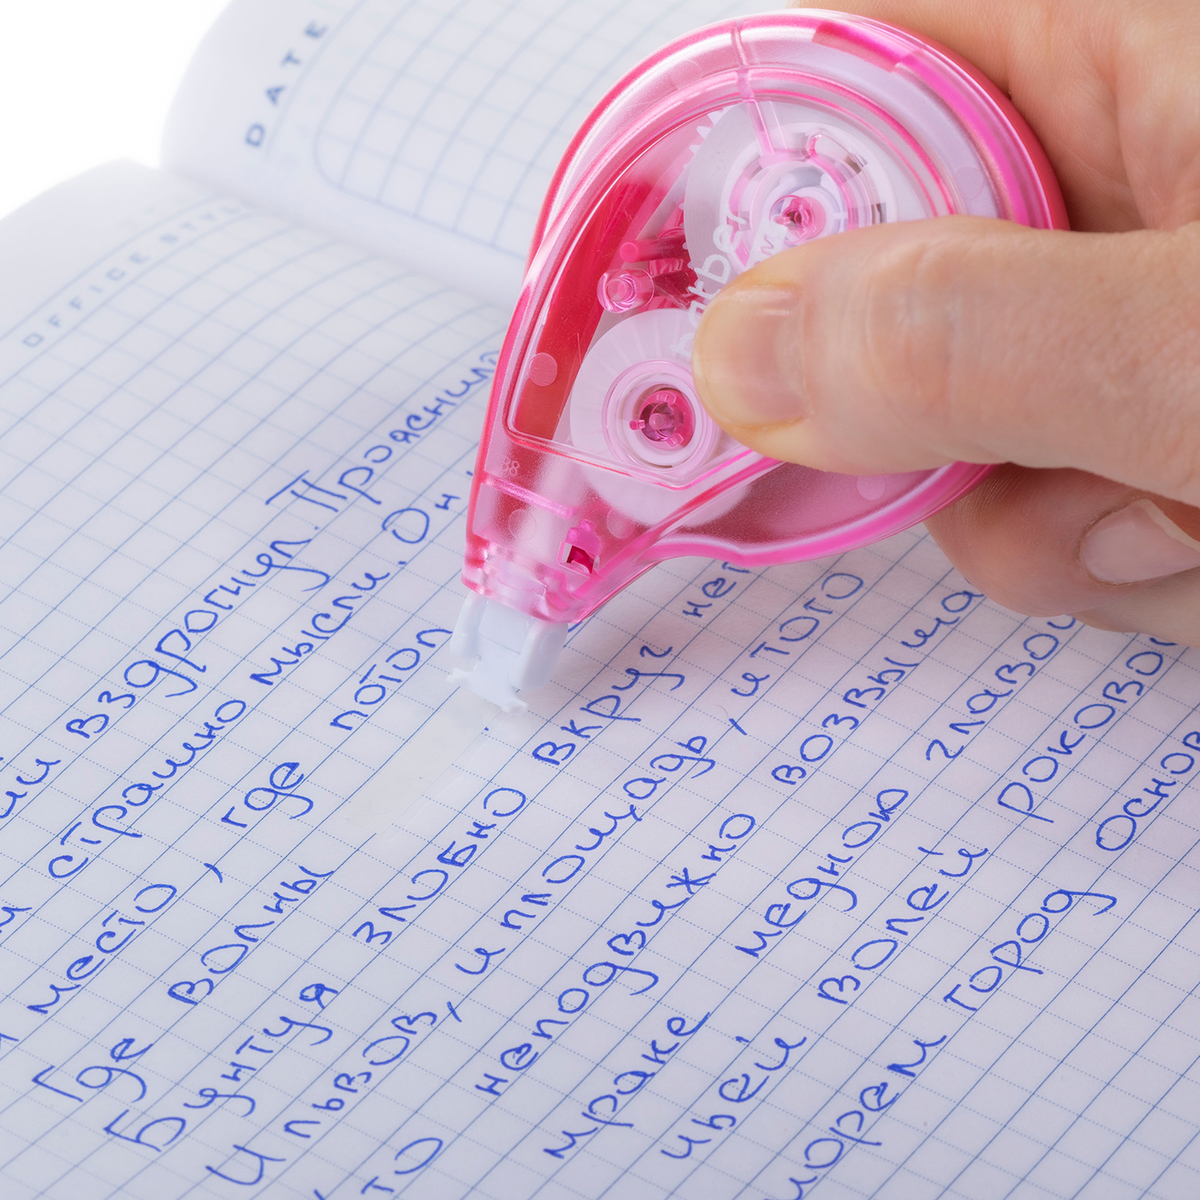 DATE
OFFICE STYL
вздрогнул. Прояснил
страшно мысли. Он
место, где потоп
Где волны
Бунтуя злобно вкруг не
И львов, и площадь, и того
то неподвижно возвыша
мраке медною главо
чьей волей роково
морем город основ